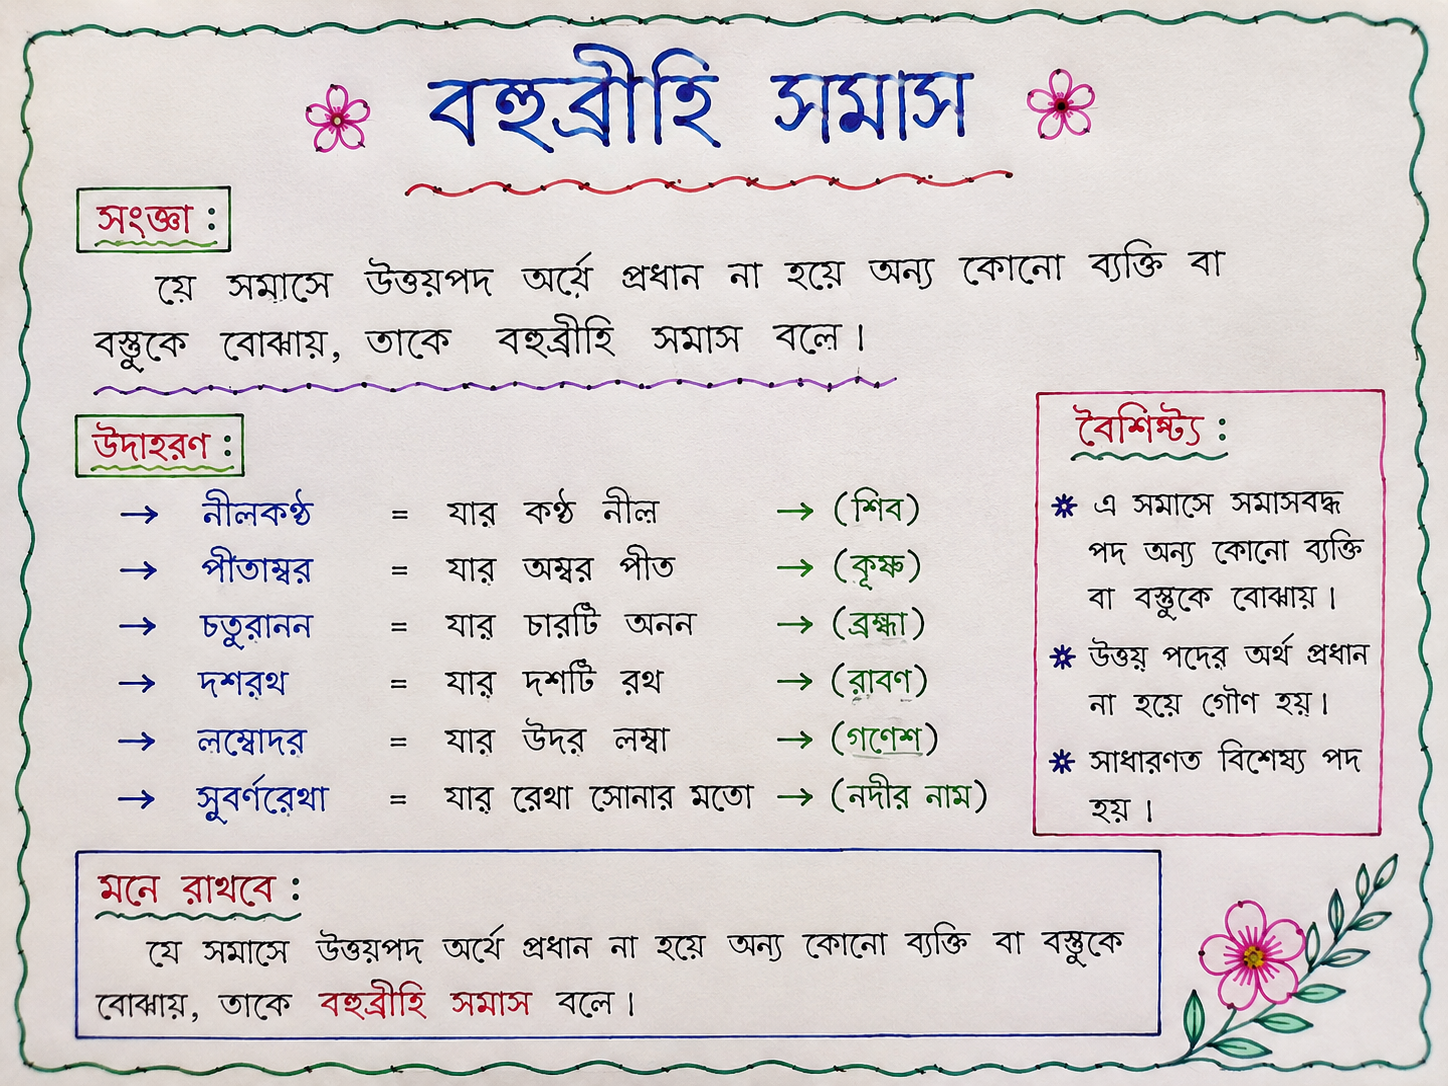 বহুব্রীহি সমাস
সংজ্ঞা :
যে সমাসে উত্তয়পদ অর্যে প্রধান না হয়ে অন্য কোনো ব্যক্তি বা
বস্তুকে বোঝায়, তাকে বহুব্রীহি সমাস বলে।
উদাহরণ :
→ নীলকণ্ঠ = যার কণ্ঠ নীল → (শিব)
→ পীতাম্বর = যার অম্বর পীত → (কৃষ্ণ)
→ চতুরানন = যার চারটি অনন → (ব্রহ্মা)
→ দশরথ = যার দশটি রথ → (রাবণ)
→ লম্বোদর = যার উদর লম্বা → (গণেশ)
→ সুবর্ণরেথা = যার রেথা সোনার মতো → (নদীর নাম)
বৈশিষ্ট্য :
এ সমাসে সমাসবদ্ধ
পদ অন্য কোনো ব্যক্তি
বা বস্তুকে বোঝায়।
উত্তয় পদের অর্থ প্রধান
না হয়ে গৌণ হয়।
সাধারণত বিশেষ্য পদ
হয়।
মনে রাখবে :
যে সমাসে উত্তয়পদ অর্যে প্রধান না হয়ে অন্য কোনো ব্যক্তি বা বস্তুকে
বোঝায়, তাকে বহুব্রীহি সমাস বলে।